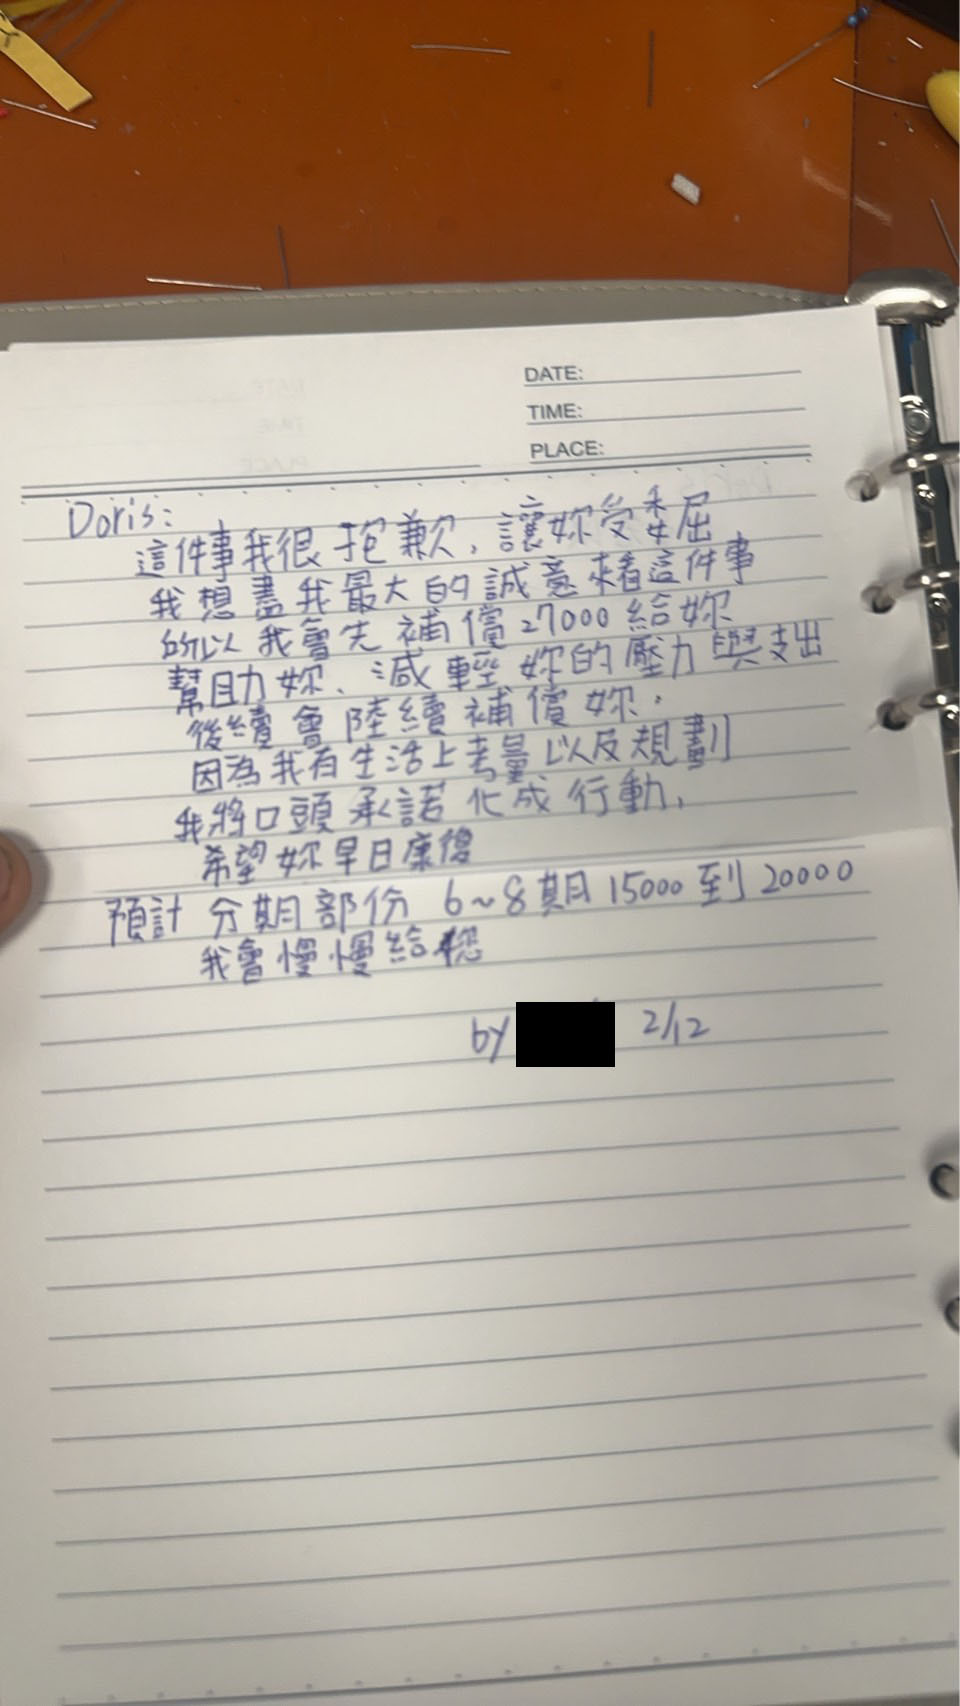 DATE:
TIME:
PLACE:
Doris:
這件事我很抱歉，讓妳受委屈
我想盡我最大的誠意來看這件事
所以我會先補償27000給妳
幫助妳、減輕妳的壓力與支出
後續會陸續補償妳.
因為我有生活上考量以及規劃
我將口頭承諾化成行動,
希望妳早日康復
預計 分期部份 6~8期 15000到20000
我會慢慢給您
by 2/12